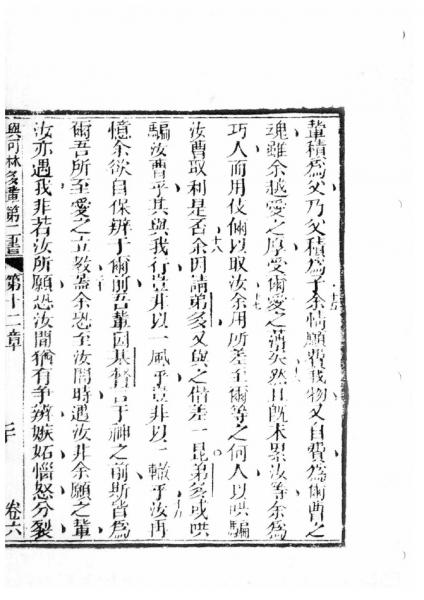 輩積為父乃父積為子余情願費我物又自費為爾曹之
魂雖余越愛之厚受爾愛之薄矣然且既未累汝等余為
巧人而用伎倆以取汝余用所差至爾等之何人以哄騙
汝曹取利是否余因請弟多又與之偕差一昆弟多或哄
騙汝曹乎其與我行豈非以一風乎豈非以一轍乎汝再
憶余欲自保辨于爾前吾輩因基督言于神之前斯皆為
爾吾所至愛之立教蓋余恐至汝間時遇汝非余願之輩
汝亦遇我非若汝所願恐汝間猶有爭辨嫉妬惱怒分裂
與可林多輩第二書 第十二章 卷六